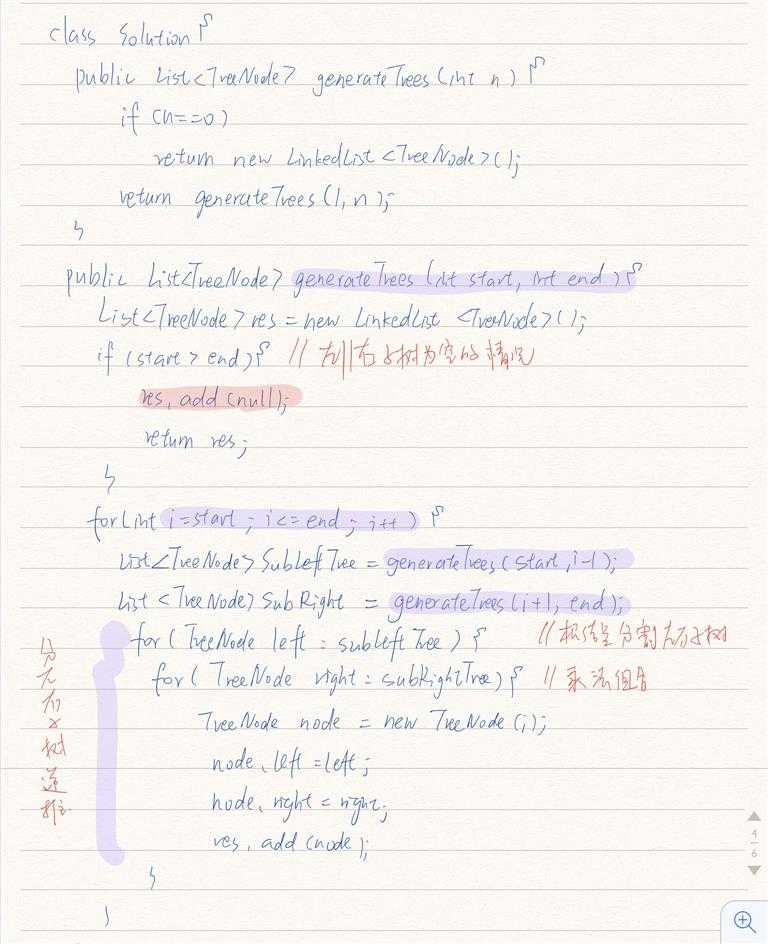 class Solution {
public List<TreeNode> generateTrees (int n) {
if (n==0)
return new LinkedList <TreeNode>();
return generateTrees (1, n);
}
public List<TreeNode> generateTrees (int start, int end) {
List<TreeNode> res = new LinkedList <TreeNode>();
if (start > end) { // 左||右子树为空的情况
res. add (null);
return res;
}
for(int i=start ; i<= end ; i++) {
List<TreeNode> SubLeftTree = generateTrees (start, i-1);
List <TreeNode> SubRight = generateTrees (i+1, end);
for ( TreeNode left : subleftTree ) { // 根结点分割左右子树
for ( TreeNode right : subRightTree) { // 乘法组合
TreeNode node = new TreeNode (i);
node. left = left ;
node. right = right;
res. add (node);
}
}
分左右子树递推
4
6